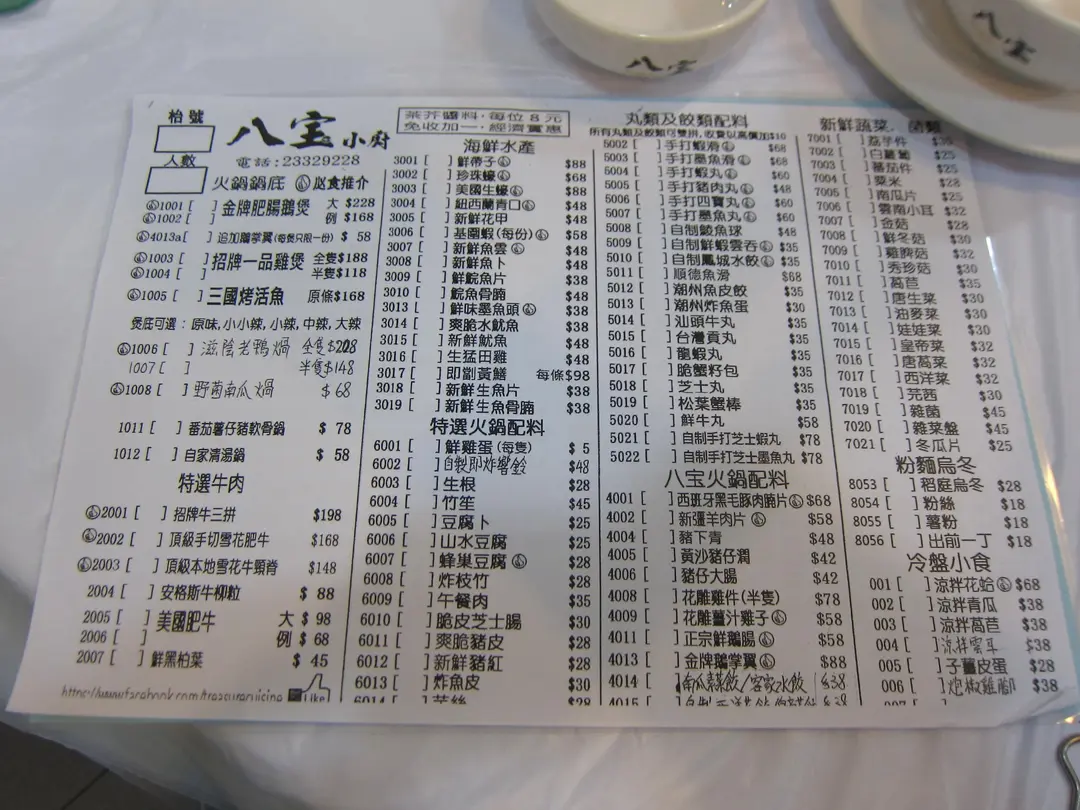 枱號
人數
八宝小廚
電話:23329228
茶芥醬料·每位8元
免收加一·經濟實惠
火鍋鍋底 必食推介
1001 [ ] 金牌肥腸鵝煲 大 $228
1002 [ ] 例 $168
4013a[ ] 追加鵝掌翼(每煲只限一份) $ 58
1003 [ ] 招牌一品雞煲 全隻$188
1004 [ ] 半隻$118
1005 [ ] 三國烤活魚 原條$168
煲底可選：原味,小小辣,小辣,中辣,大辣
1006 [ ] 滋陰老鴨焗 全隻$208
1007 [ ] 半隻$148
1008 [ ] 野菌南瓜焗 $68
1011 [ ] 番茄薯仔豬軟骨鍋 $ 78
1012 [ ] 自家清湯鍋 $ 58
特選牛肉
2001 [ ] 招牌牛三拼 $198
2002 [ ] 頂級手切雪花肥牛 $168
2003 [ ] 頂級本地雪花牛頸脊 $148
2004 [ ] 安格斯牛柳粒 $ 88
2005 [ ] 美國肥牛 大 $ 98
2006 [ ] 例 $ 68
2007 [ ] 鮮黑柏葉 $ 45
https://www.facebook.com/treasurcuisine Like
海鮮水產
3001 [ ] 鮮帶子 $88
3002 [ ] 珍珠蠔 $68
3003 [ ] 美國生蠔 $88
3004 [ ] 紐西蘭青口 $48
3005 [ ] 新鮮花甲 $48
3006 [ ] 基圍蝦(每份) $58
3007 [ ] 新鮮魚雲 $48
3008 [ ] 新鮮魚卜 $48
3009 [ ] 鮮鯇魚片 $38
3010 [ ] 鯇魚骨腩 $48
3013 [ ] 鮮味墨魚頭 $48
3014 [ ] 爽脆水魷魚 $38
3015 [ ] 新鮮魷魚 $48
3016 [ ] 生猛田雞 $48
3017 [ ] 即劏黃鱔 每條$98
3018 [ ] 新鮮生魚片 $38
3019 [ ] 新鮮生魚骨腩 $38
特選火鍋配料
6001 [ ] 鮮雞蛋(每隻) $ 5
6002 [ ] 自製即炸響鈴 $48
6003 [ ] 生根 $28
6004 [ ] 竹笙 $45
6005 [ ] 豆腐卜 $25
6006 [ ] 山水豆腐 $25
6007 [ ] 蜂巢豆腐 $28
6008 [ ] 炸枝竹 $28
6009 [ ] 午餐肉 $35
6010 [ ] 脆皮芝士腸 $30
6011 [ ] 爽脆豬皮 $28
6012 [ ] 新鮮豬紅 $28
6013 [ ] 炸魚皮 $30
6014 [ ] $28
丸類及餃類配料
所有丸類及餃類可雙拼,收費以高價加$10
5002 [ ] 手打蝦滑 $68
5003 [ ] 手打墨魚滑 $68
5004 [ ] 手打蝦丸 $60
5005 [ ] 手打豬肉丸 $48
5006 [ ] 手打四寶丸 $60
5007 [ ] 手打墨魚丸 $60
5008 [ ] 自制鯪魚球 $48
5009 [ ] 自制鮮蝦雲吞 $35
5010 [ ] 自制鳳城水餃 $35
5011 [ ] 順德魚滑 $68
5012 [ ] 潮州魚皮餃 $35
5013 [ ] 潮州炸魚蛋 $30
5014 [ ] 汕頭牛丸 $35
5015 [ ] 台灣貢丸 $35
5016 [ ] 龍蝦丸 $35
5017 [ ] 脆蟹籽包 $35
5018 [ ] 芝士丸 $35
5019 [ ] 松葉蟹棒 $35
5020 [ ] 鮮牛丸 $58
5021 [ ] 自制手打芝士蝦丸 $78
5022 [ ] 自制手打芝士墨魚丸 $78
八宝火鍋配料
4001 [ ] 西班牙黑毛豚肉腩片 $68
4002 [ ] 新彊羊肉片 $58
4004 [ ] 豬下青 $48
4005 [ ] 黃沙豬仔潤 $42
4006 [ ] 豬仔大腸 $42
4008 [ ] 花雕雞件(半隻) $78
4009 [ ] 花雕薑汁雞子 $58
4011 [ ] 正宗鮮鵝腸 $58
4013 [ ] 金牌鵝掌翼 $88
4014 [ ] 南瓜蒜餃/客家水餃 $38
4015 [ ] $38
新鮮蔬菜、菌類
7001 [ ] 茄子件
7002 [ ] 白蘿蔔 $25
7003 [ ] 蕃茄件 $25
7004 [ ] 粟米 $28
7005 [ ] 南瓜片 $25
7006 [ ] 雲南小耳 $32
7007 [ ] 金菇 $28
7008 [ ] 鮮冬菇 $30
7009 [ ] 雞脾菇 $32
7010 [ ] 秀珍菇 $30
7011 [ ] 萵苣 $35
7012 [ ] 唐生菜 $30
7013 [ ] 油麥菜 $30
7014 [ ] 娃娃菜 $30
7015 [ ] 皇帝菜 $32
7016 [ ] 唐萵菜 $32
7017 [ ] 西洋菜 $32
7018 [ ] 芫茜 $30
7019 [ ] 雜菌 $45
7020 [ ] 雜菜盤 $45
7021 [ ] 冬瓜片 $25
粉麵烏冬
8053 [ ] 稻庭烏冬 $28
8054 [ ] 粉絲 $18
8055 [ ] 薯粉 $18
8056 [ ] 出前一丁 $18
冷盤小食
001 [ ] 涼拌花蛤 $68
002 [ ] 涼拌青瓜 $38
003 [ ] 涼拌萵苣 $38
004 [ ] 涼拌雲耳 $38
005 [ ] 子薑皮蛋 $28
006 [ ] 泡椒雞腳 $38
八宝
八宝